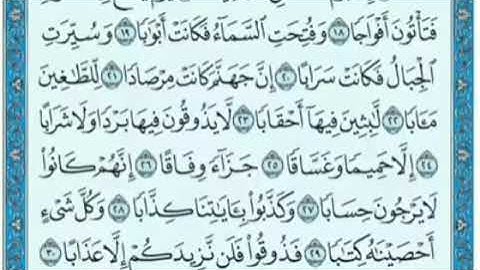 فَتَأْتُونَ أَفْوَاجًا ١٨ وَفُتِحَتِ ٱلسَّمَآءُ فَكَانَتْ أَبْوَٰبًا ١٩ وَسُيِّرَتِ
ٱلْجِبَالُ فَكَانَتْ سَرَابًا ٢٠ إِنَّ جَهَنَّمَ كَانَتْ مِرْصَادًا ٢١ لِّلطَّٰغِينَ
مَـَٔابًا ٢٢ لَّٰبِثِينَ فِيهَآ أَحْقَابًا ٢٣ لَّا يَذُوقُونَ فِيهَا بَرْدًا وَلَا شَرَابًا
٢٤ إِلَّا حَمِيمًا وَغَسَّاقًا ٢٥ جَزَآءً وِفَاقًا ٢٦ إِنَّهُمْ كَانُوا۟
لَا يَرْجُونَ حِسَابًا ٢٧ وَكَذَّبُوا۟ بِـَٔايَٰتِنَا كِذَّابًا ٢٨ وَكُلَّ شَىْءٍ
أَحْصَيْنَٰهُ كِتَٰبًا ٢٩ فَذُوقُوا۟ فَلَن نَّزِيدَكُمْ إِلَّا عَذَابًا ٣٠